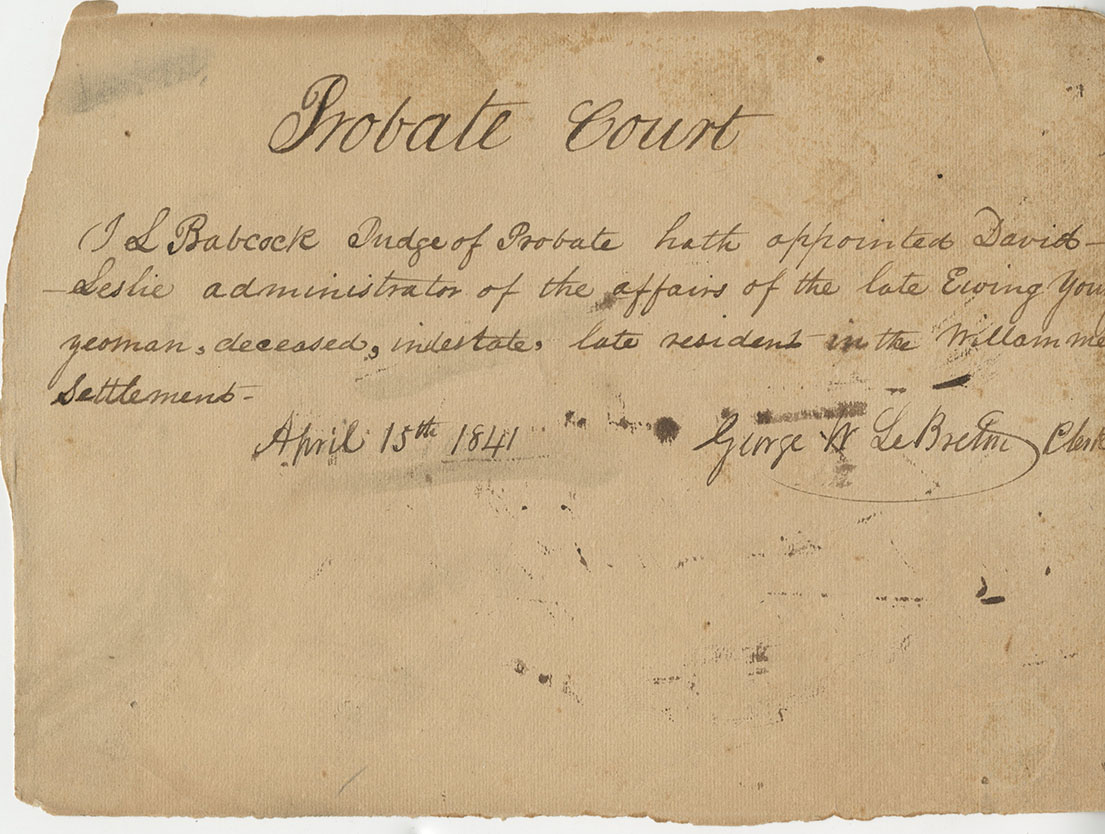 Probate Court
I L Babcock Judge of Probate hath appointed David
Leslie administrator of the affairs of the late Ewing Youn
yeoman, deceased, intestate, late resident in the Willamme
Settlement-
April 15th 1841 George W LeBreton Clerk